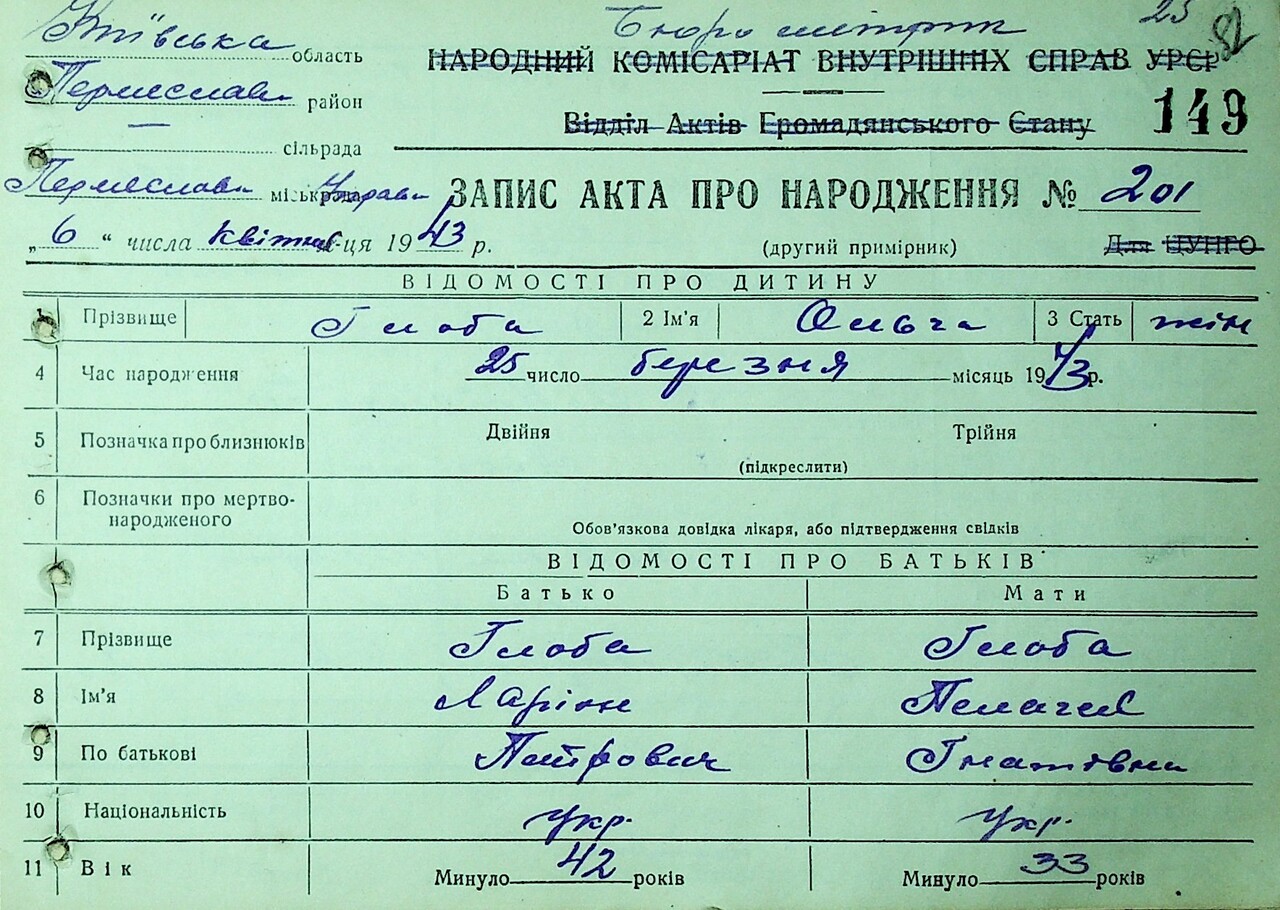 Київська область
Бюро метрик
25
82
НАРОДНИЙ КОМІСАРІАТ ВНУТРІШНІХ СПРАВ УРСР
Переяслав район
Відділ Актів Громадянського Стану
149
сільрада
Переяслав міськрада Управа
ЗАПИС АКТА ПРО НАРОДЖЕННЯ № 201
„ 6 “ числа квітня м-ця 1943 р.
(другий примірник)
Для ЦУНГО
ВІДОМОСТІ ПРО ДИТИНУ
1 Прізвище Глоба 2 Ім'я Ольга 3 Стать жін
4 Час народження 25 число березня місяць 1943 р.
5 Позначка про близнюків Двійня Трійня
(підкреслити)
6 Позначки про мертво-
народженого
Обов'язкова довідка лікаря, або підтвердження свідків
ВІДОМОСТІ ПРО БАТЬКІВ
Батько Мати
7 Прізвище Глоба Глоба
8 Ім'я Ларіон Пелагея
9 По батькові Петрович Гнатівна
10 Національність укр. укр.
11 Вік Минуло 42 років Минуло 33 років